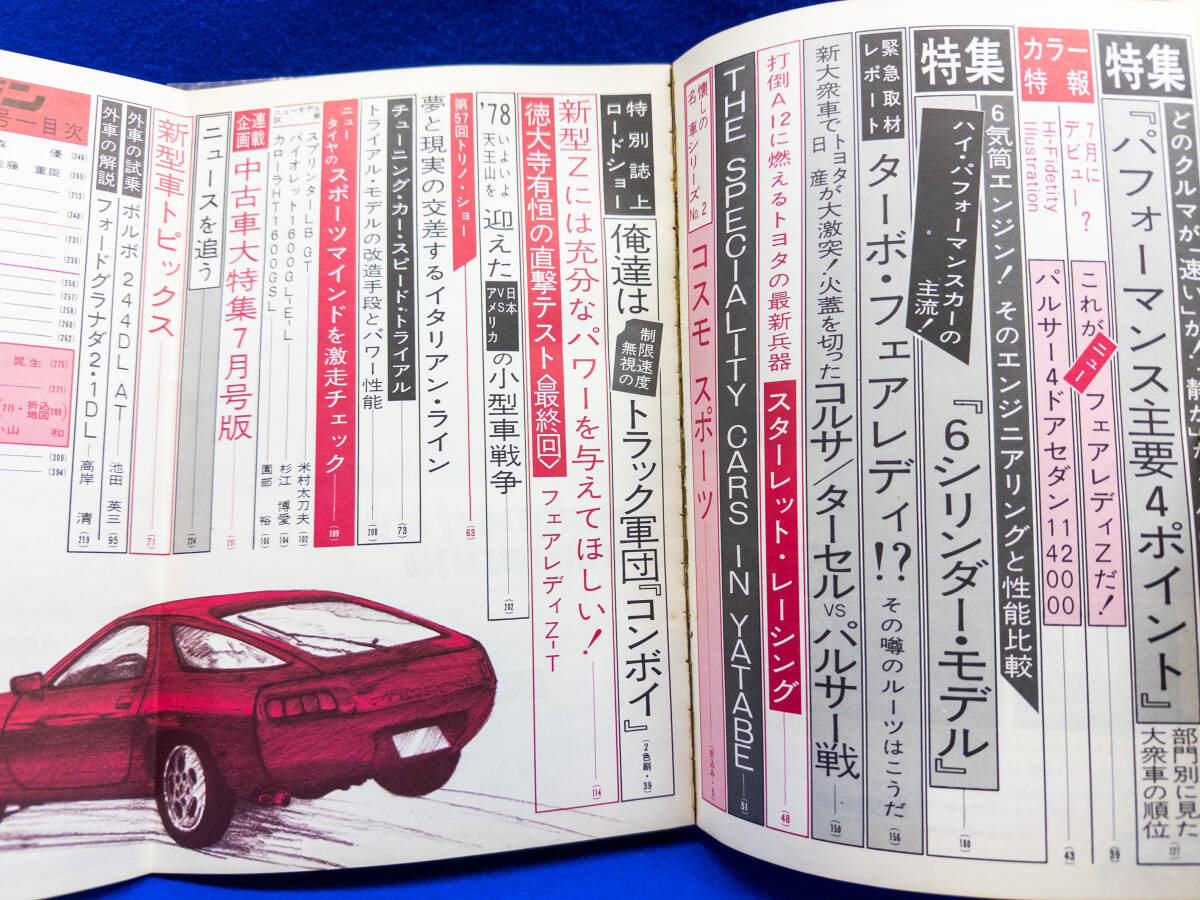 どのクルマが
速い」か!
特集
『パフォーマンス主要4ポイント』
部門別に見た
大衆車の順位
カラー
特報
7月に
デビュー?
Hi-Fidetity
Illustration
これが
ニュー
フェアレディZだ!
(39)
パルサー4ドアセダン1200
1400
(43)
特集
6気筒エンジン! そのエンジニアリングと性能比較
ハイ・パフォーマンスカーの
主流!
『6シリンダー・モデル』
(180)
緊急取材
レポート
ターボ・フェアレディ!?
その噂のルーツはこうだ
(156)
新大衆車でトヨタ
日産
が大激突!火蓋を切った
コルサ/ターセルVSパルサー戦
(150)
打倒A12に燃えるトヨタの最新兵器
スターレット・レーシング
(48)
THE SPECIALITY CARS IN YATABE
(51)
懐しの
名車シリーズ
No.2
コスモ スポーツ
特別誌上
ロードショー
俺達は
制限速度
無視の
トラック軍団『コンボイ』
(2色刷・39)
新型Zには充分なパワーを与えてほしい!
(114)
徳大寺有恒の直撃テスト〈最終回〉
フェアレディZ-T
'78
いよいよ
天王山を
迎えた
日本
VS
アメリカ
の小型車戦争
(202)
第57回トリノ・ショー
(63)
夢と現実の交差するイタリアン・ライン
チューニング・カー・スピード・トライアル
(73)
トライアル・モデルの改造手段とパワー性能
(208)
ニュー
タイヤの
スポーツマインドを激走チェック
(109)
ニューモデル
試乗
スプリンターLB GT
米村太刀夫
(102)
バイオレット1600GL-E-L
杉江 博愛
(104)
カローラHT1600GSL
園部 裕
(106)
連載
企画
中古車大特集7月号版
(291)
ニュースを追う
(224)
新型車トピックス
(71)
外車の試乗
ボルボ 244DL AT
池田 英三
(95)
外車の解説
フォードグラナダ2・1DL
高岸 清
(219)
号一目次
優
(246)
佐藤 重臣
(265)
(213)
(248)
(231)
(235)
(256)
(257)
(258)
(260)
(262)
晃生
(275)
(271)
折込
地図
小山 和
(309)
(394)